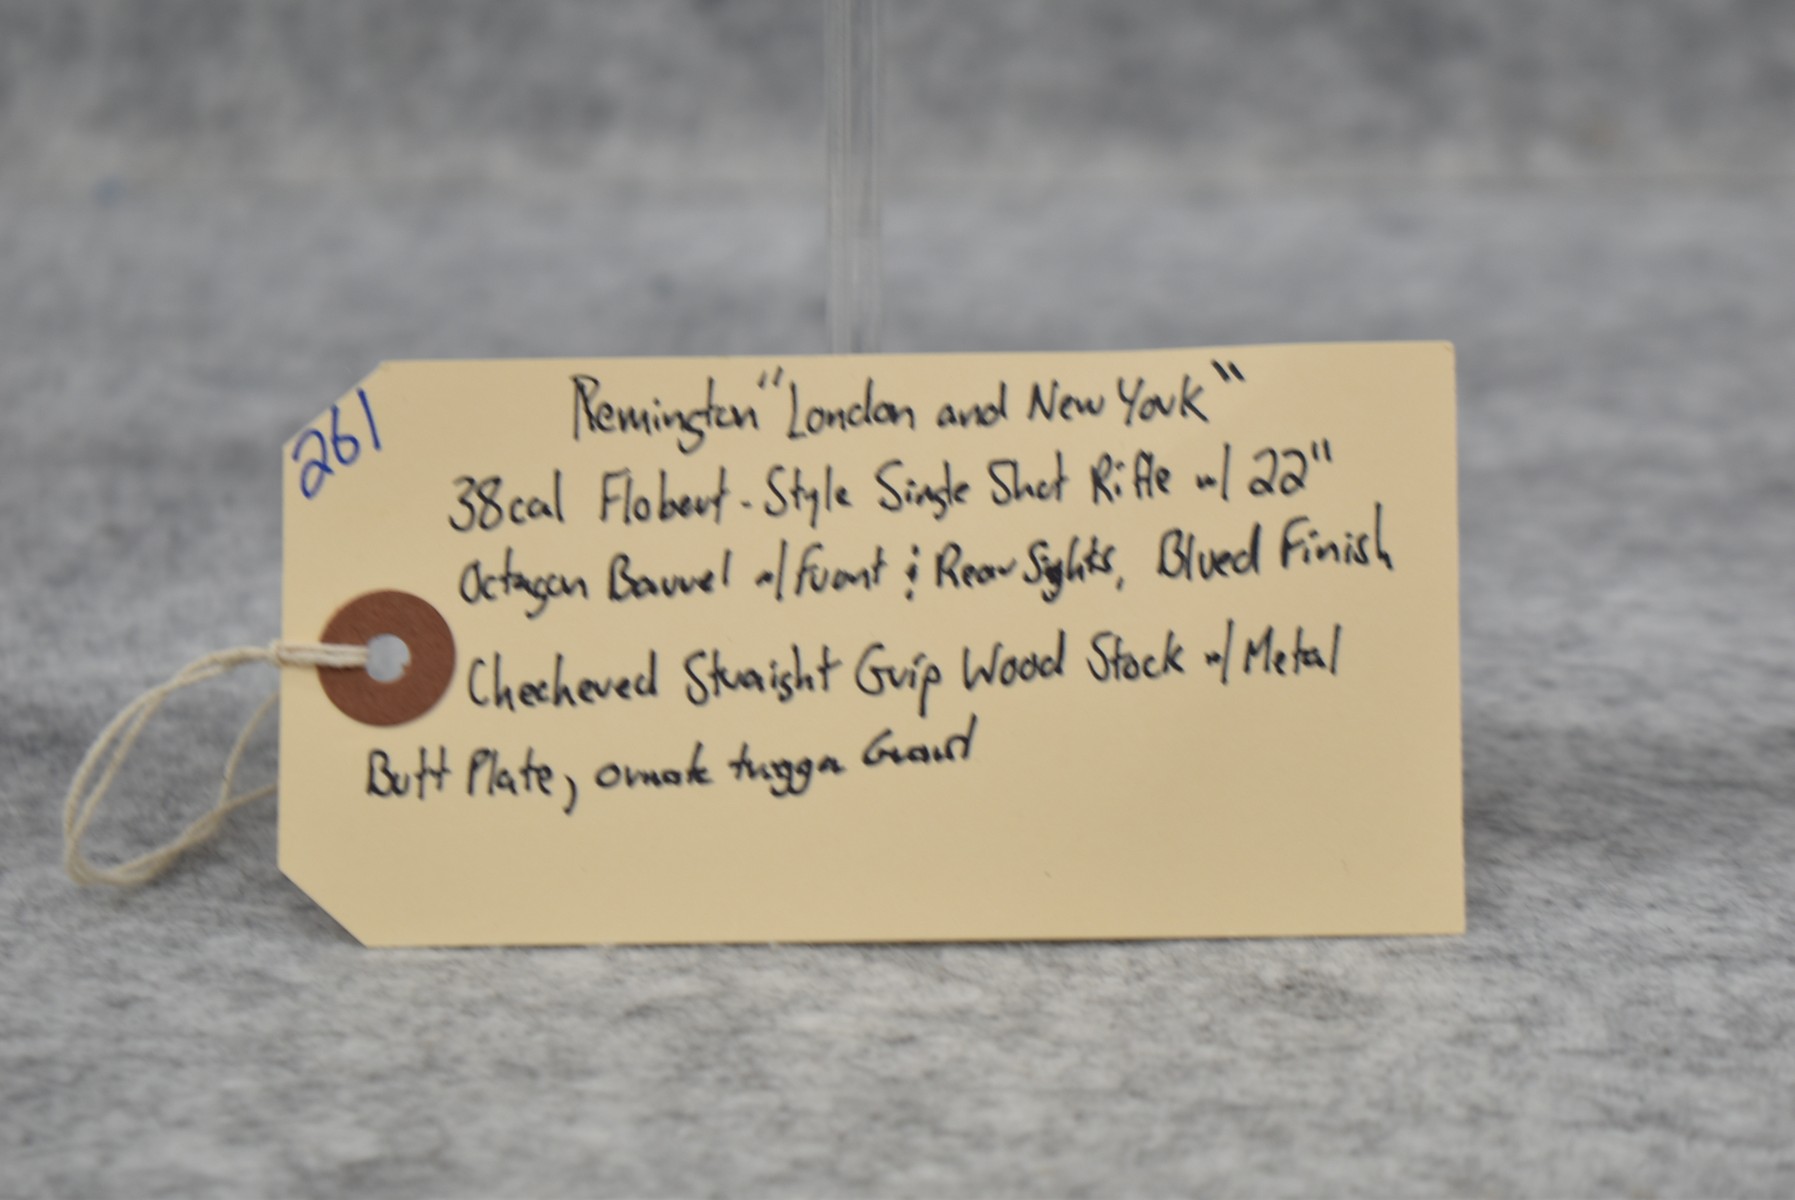 261
Remington "London and New York"
38cal Flobert-Style Single Shot Rifle w/ 22"
Octagon Barrel w/ Front & Rear Sights, Blued Finish
Checkered Straight Grip Wood Stock w/ Metal
Butt Plate, ornate trigger Guard